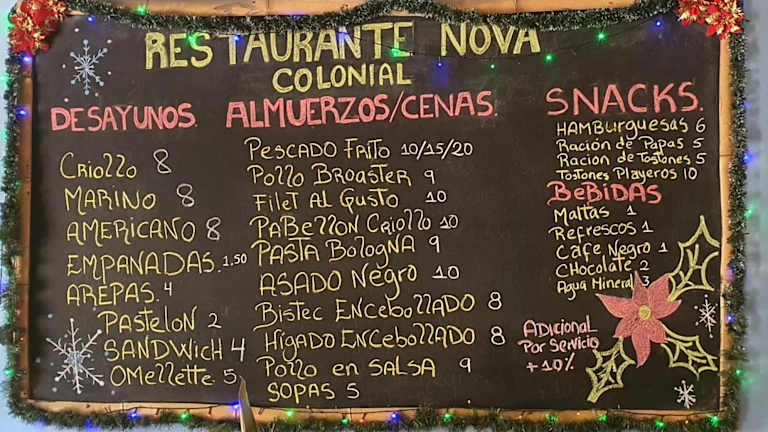 RESTAURANTE NOVA
COLONIAL
DESAYUNOS.
CRiollo 8
MARINO 8
AMERICANO 8
EMPANADAS. 1,50
AREPAS. 4
PASteloN 2
SANDWicH 4
OMellette. 5
ALMUERZOS/CENAS.
PESCADO FRito 10/15/20
Pollo BROASteR 9
Filet Al Gusto 10
PABellON CRiollo 10
PASTA BoloGNA 9
ASADO Negro 10
Bistec ENCebollADO 8
HiGADO ENCebollADO 8
Pollo en SALSA 9
SOPAS 5
SNACKS.
HAMBurguesas 6
Ración de Papas 5
Racion de Tostones 5
Tostones Playeros 10
BeBiDAS
Maltas 1
Refrescos 1
Cafe Negro 1
CHocolate 2
Agua Mineral 3
ADicional
Por Servicio
+10%